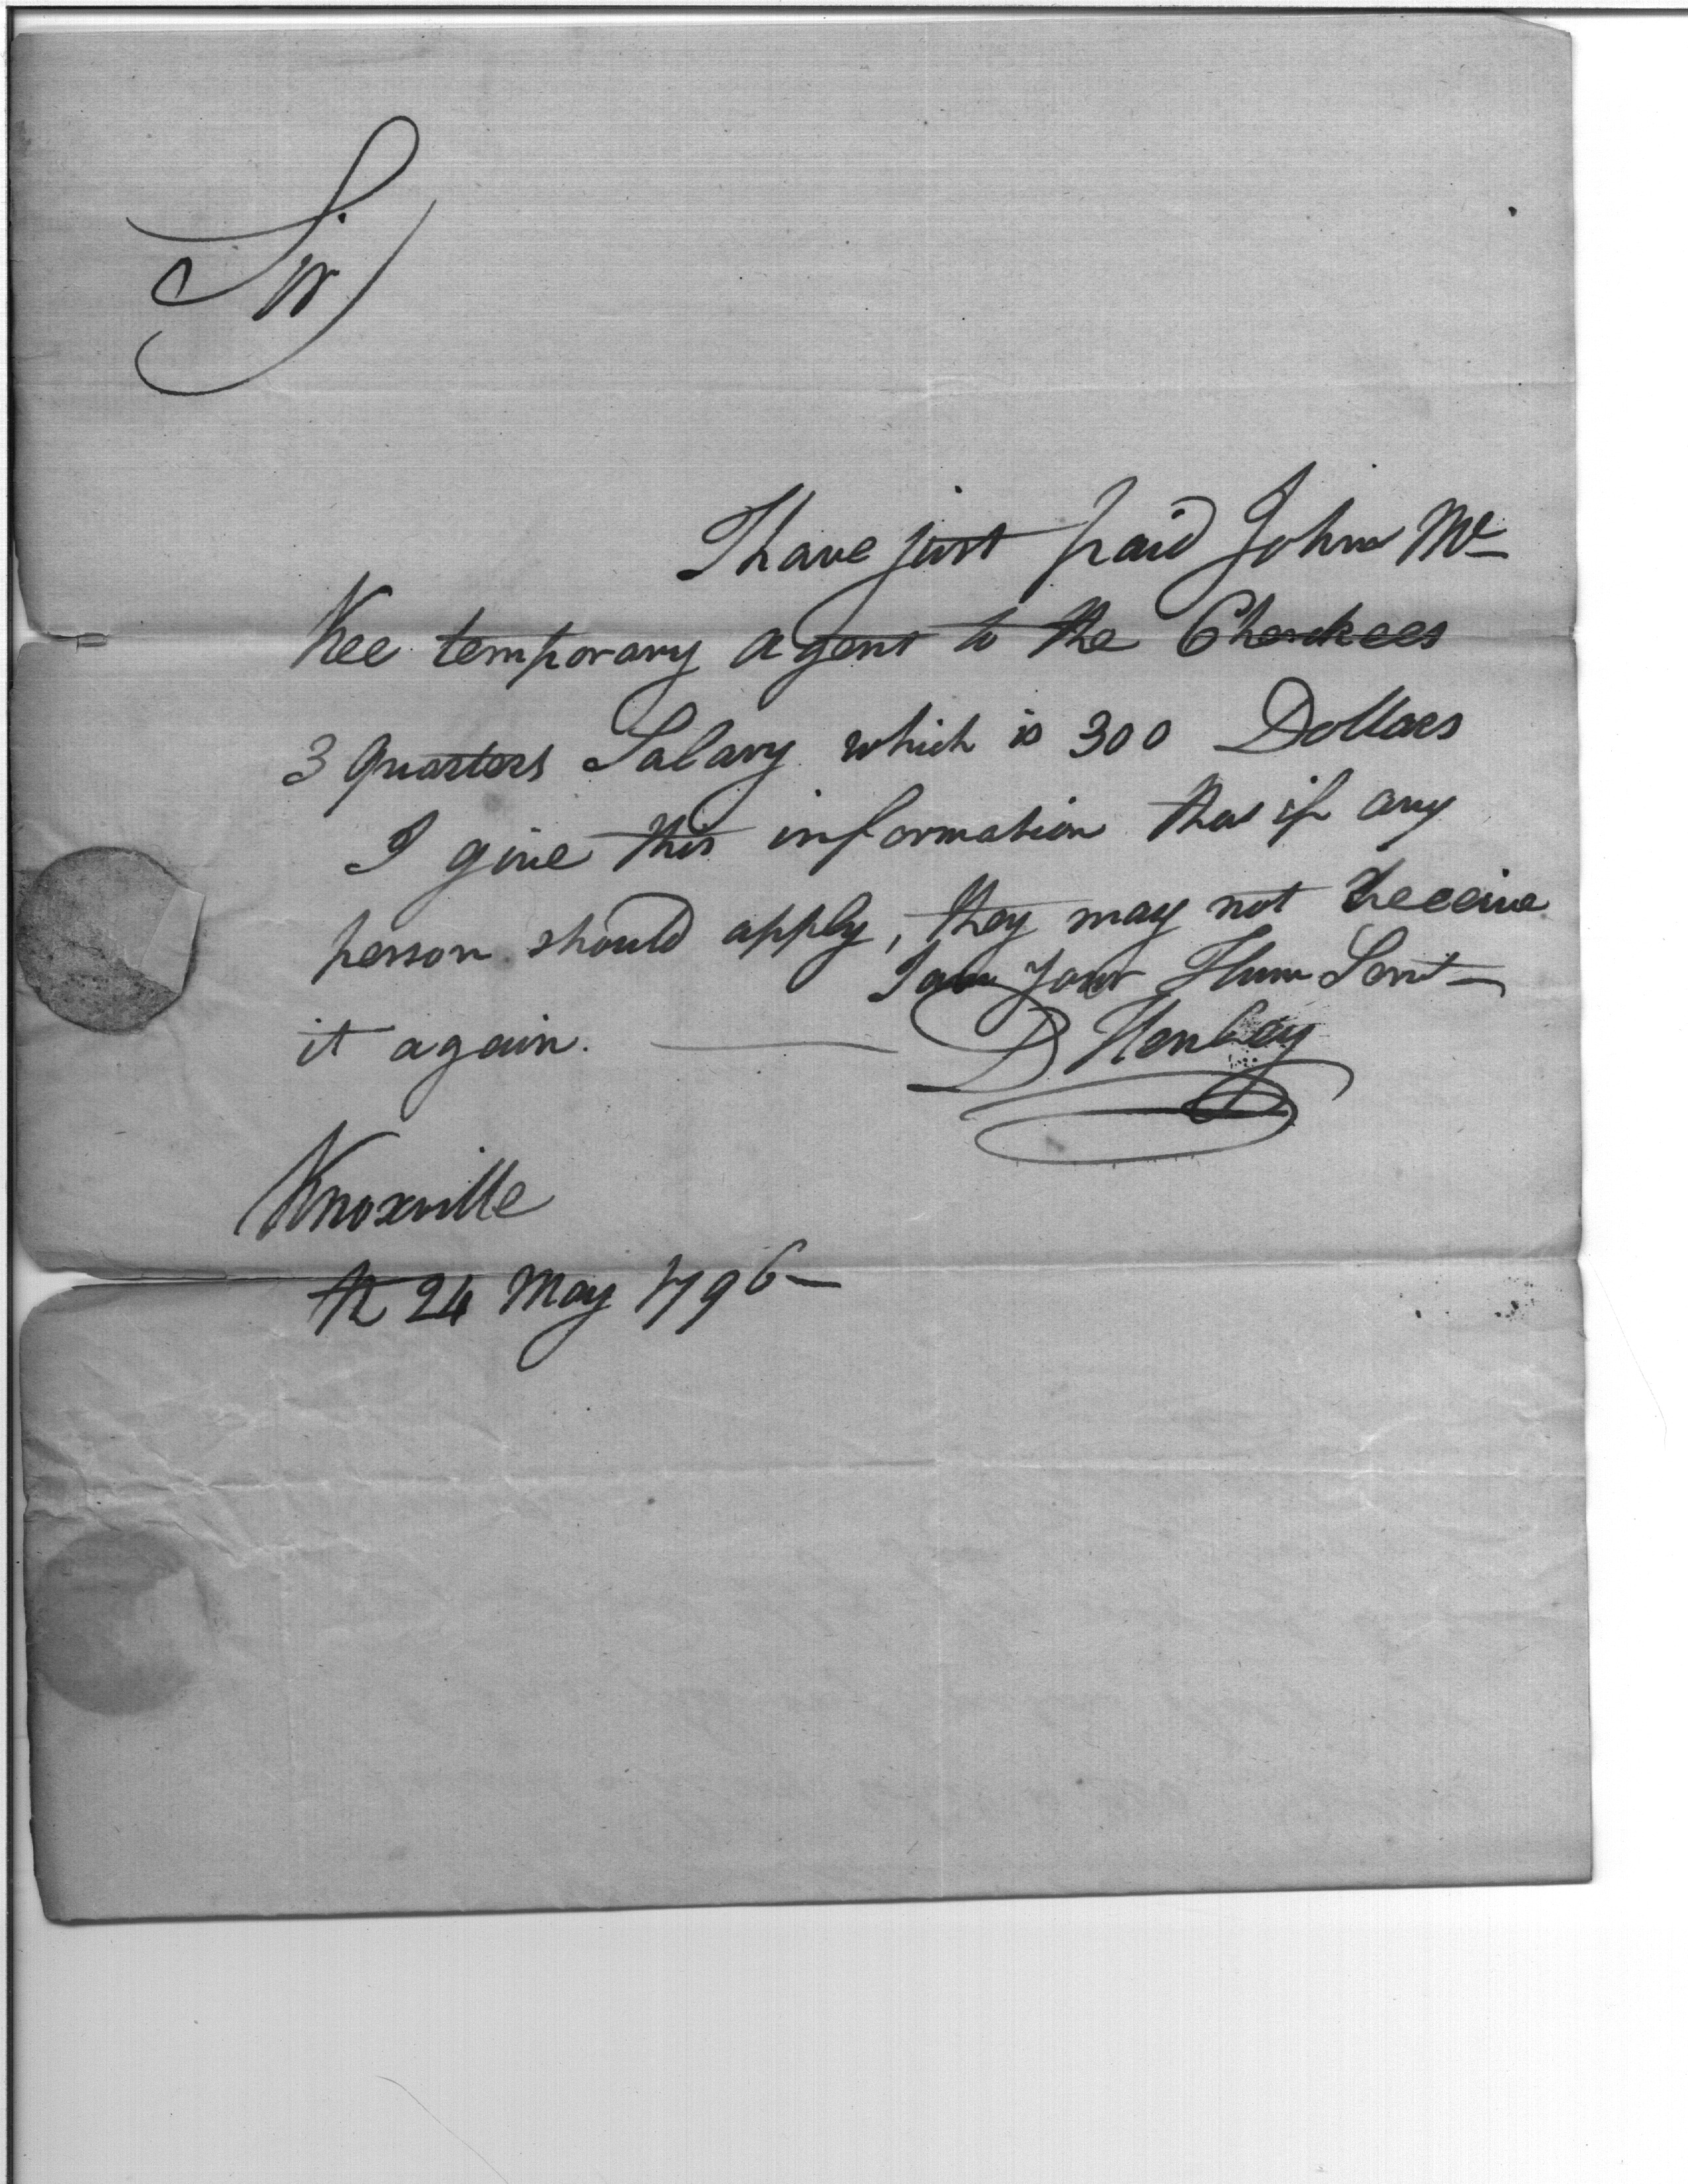 Sir
I have just paid John Mc
Kee temporary agent to the Cherokees
3 Quarters Salary which is 300 Dollars
I give this information that if any
person should apply, they may not receive
it again. I am Your Hum Servt
D Henley
Knoxville
the 24 May 1796